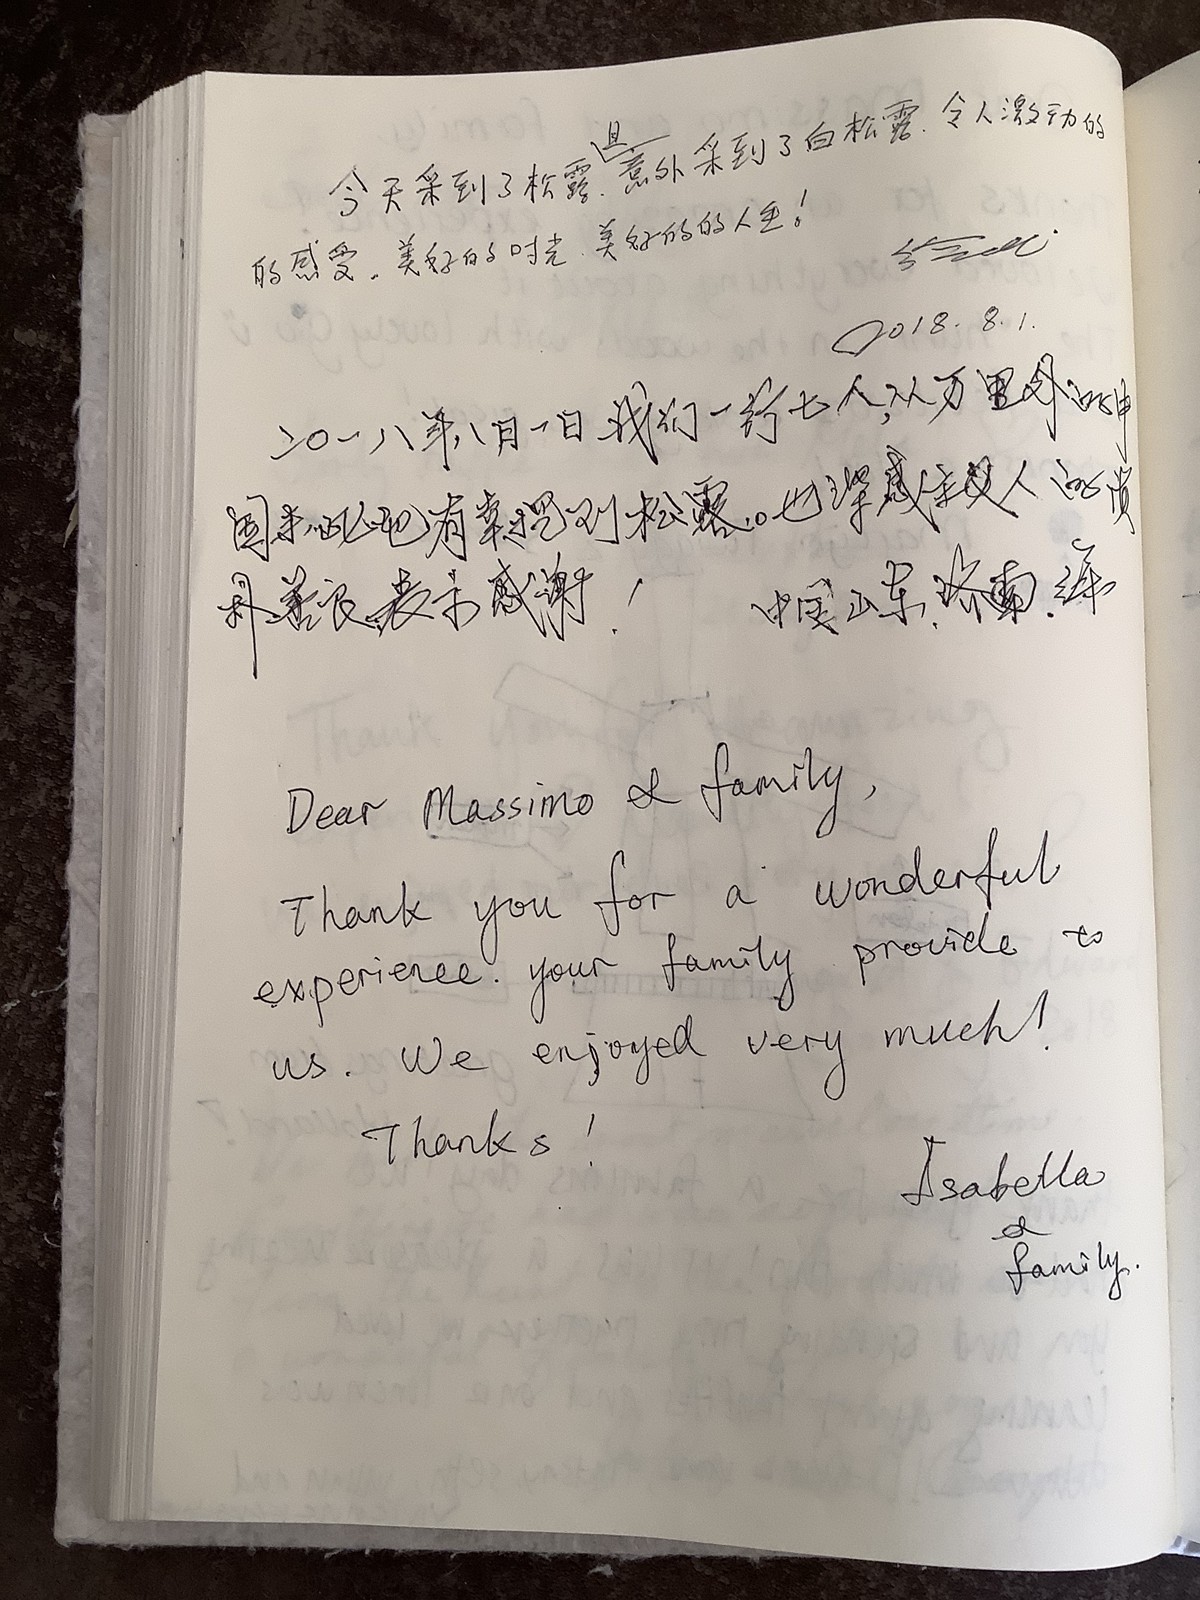 今天采到了松露.且意外采到了白松露.令人激动的
的感受.美好的时光.美好的的人生!
2018.8.1.
二〇一八年八月一日我们一行七人,从万里外的中
国来此地有幸挖到松露。也深感主人的
善良,表示感谢!
中国山东.济南.
Dear Massimo & family,
Thank you for a wonderful
experience. your family provide to
us. We enjoyed very much!
Thanks!
Isabella
&
family.